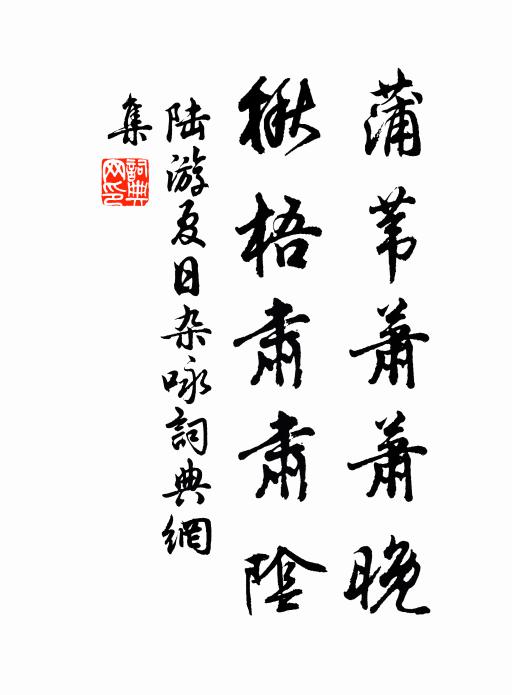 蒲苇萧萧晚
楸梧肃肃阴
陆游夏日杂咏詞典網
集
詞典
网印